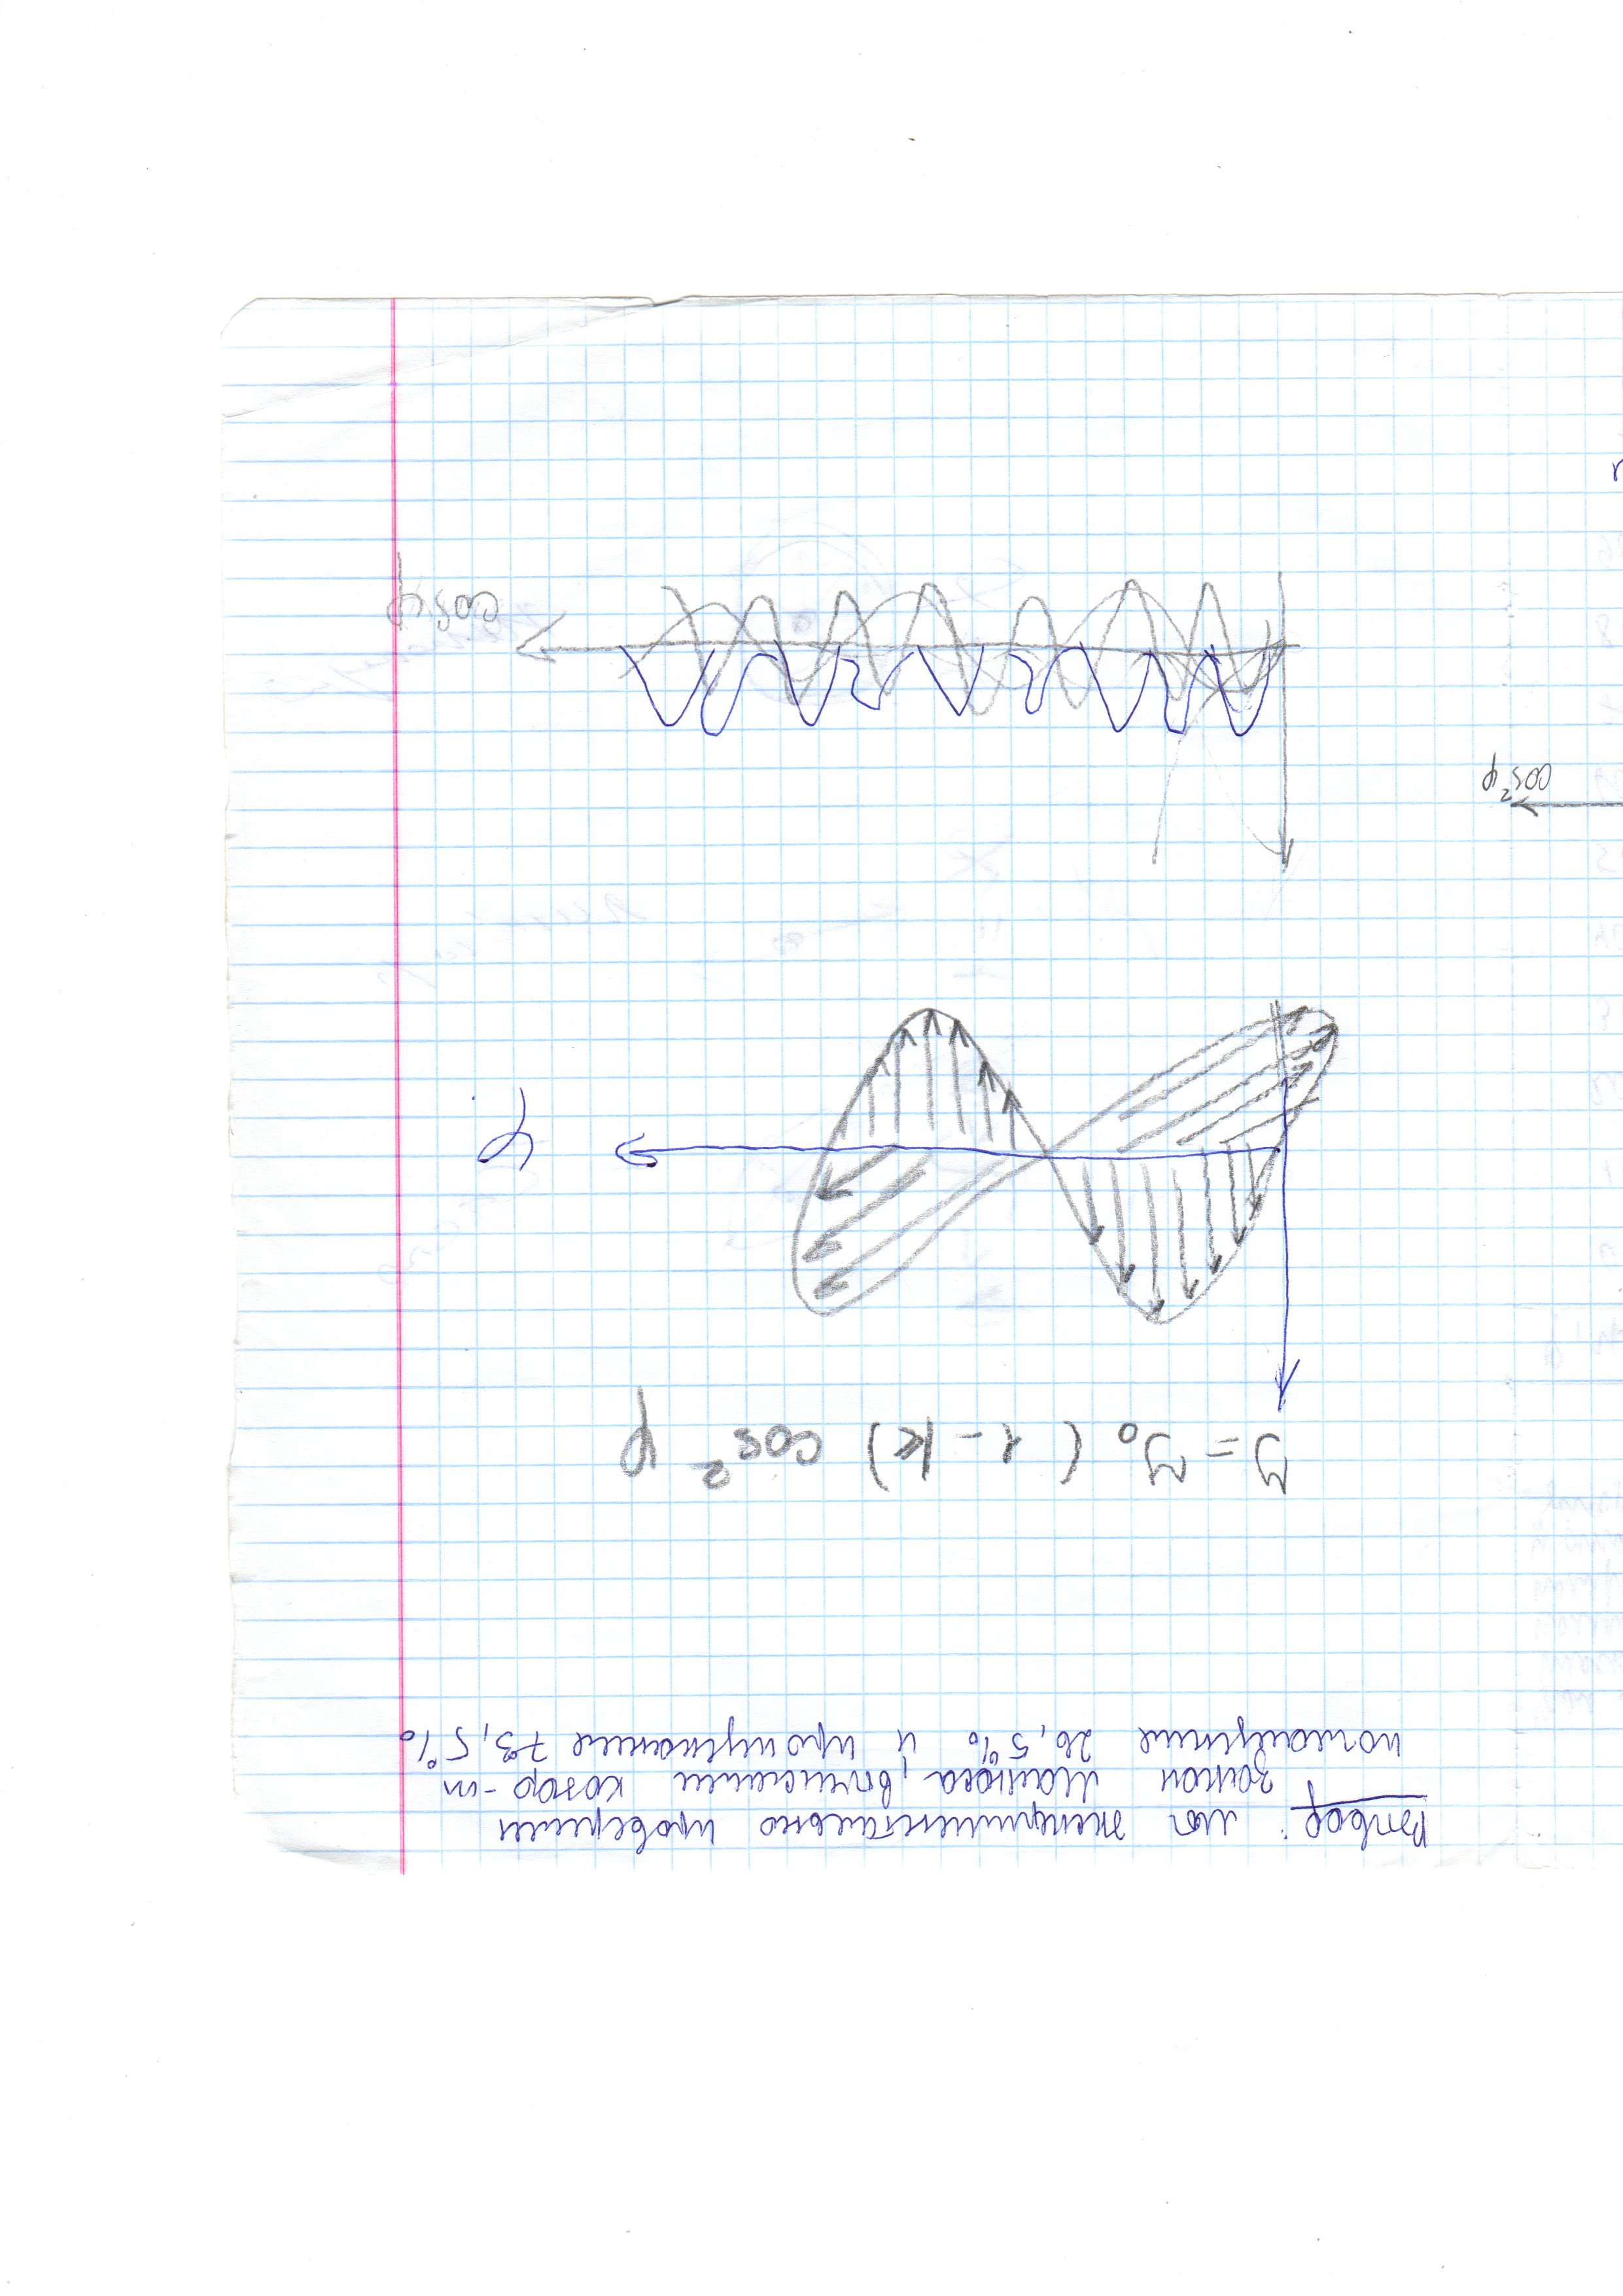 Вывод: мы экспериментально проверили
закон Малюса, вычислили коэф-т
поглощения 26,5% и пропускания 73,5%
J = J₀ (1 - k) cos² φ
φ
cos²φ
cos φ